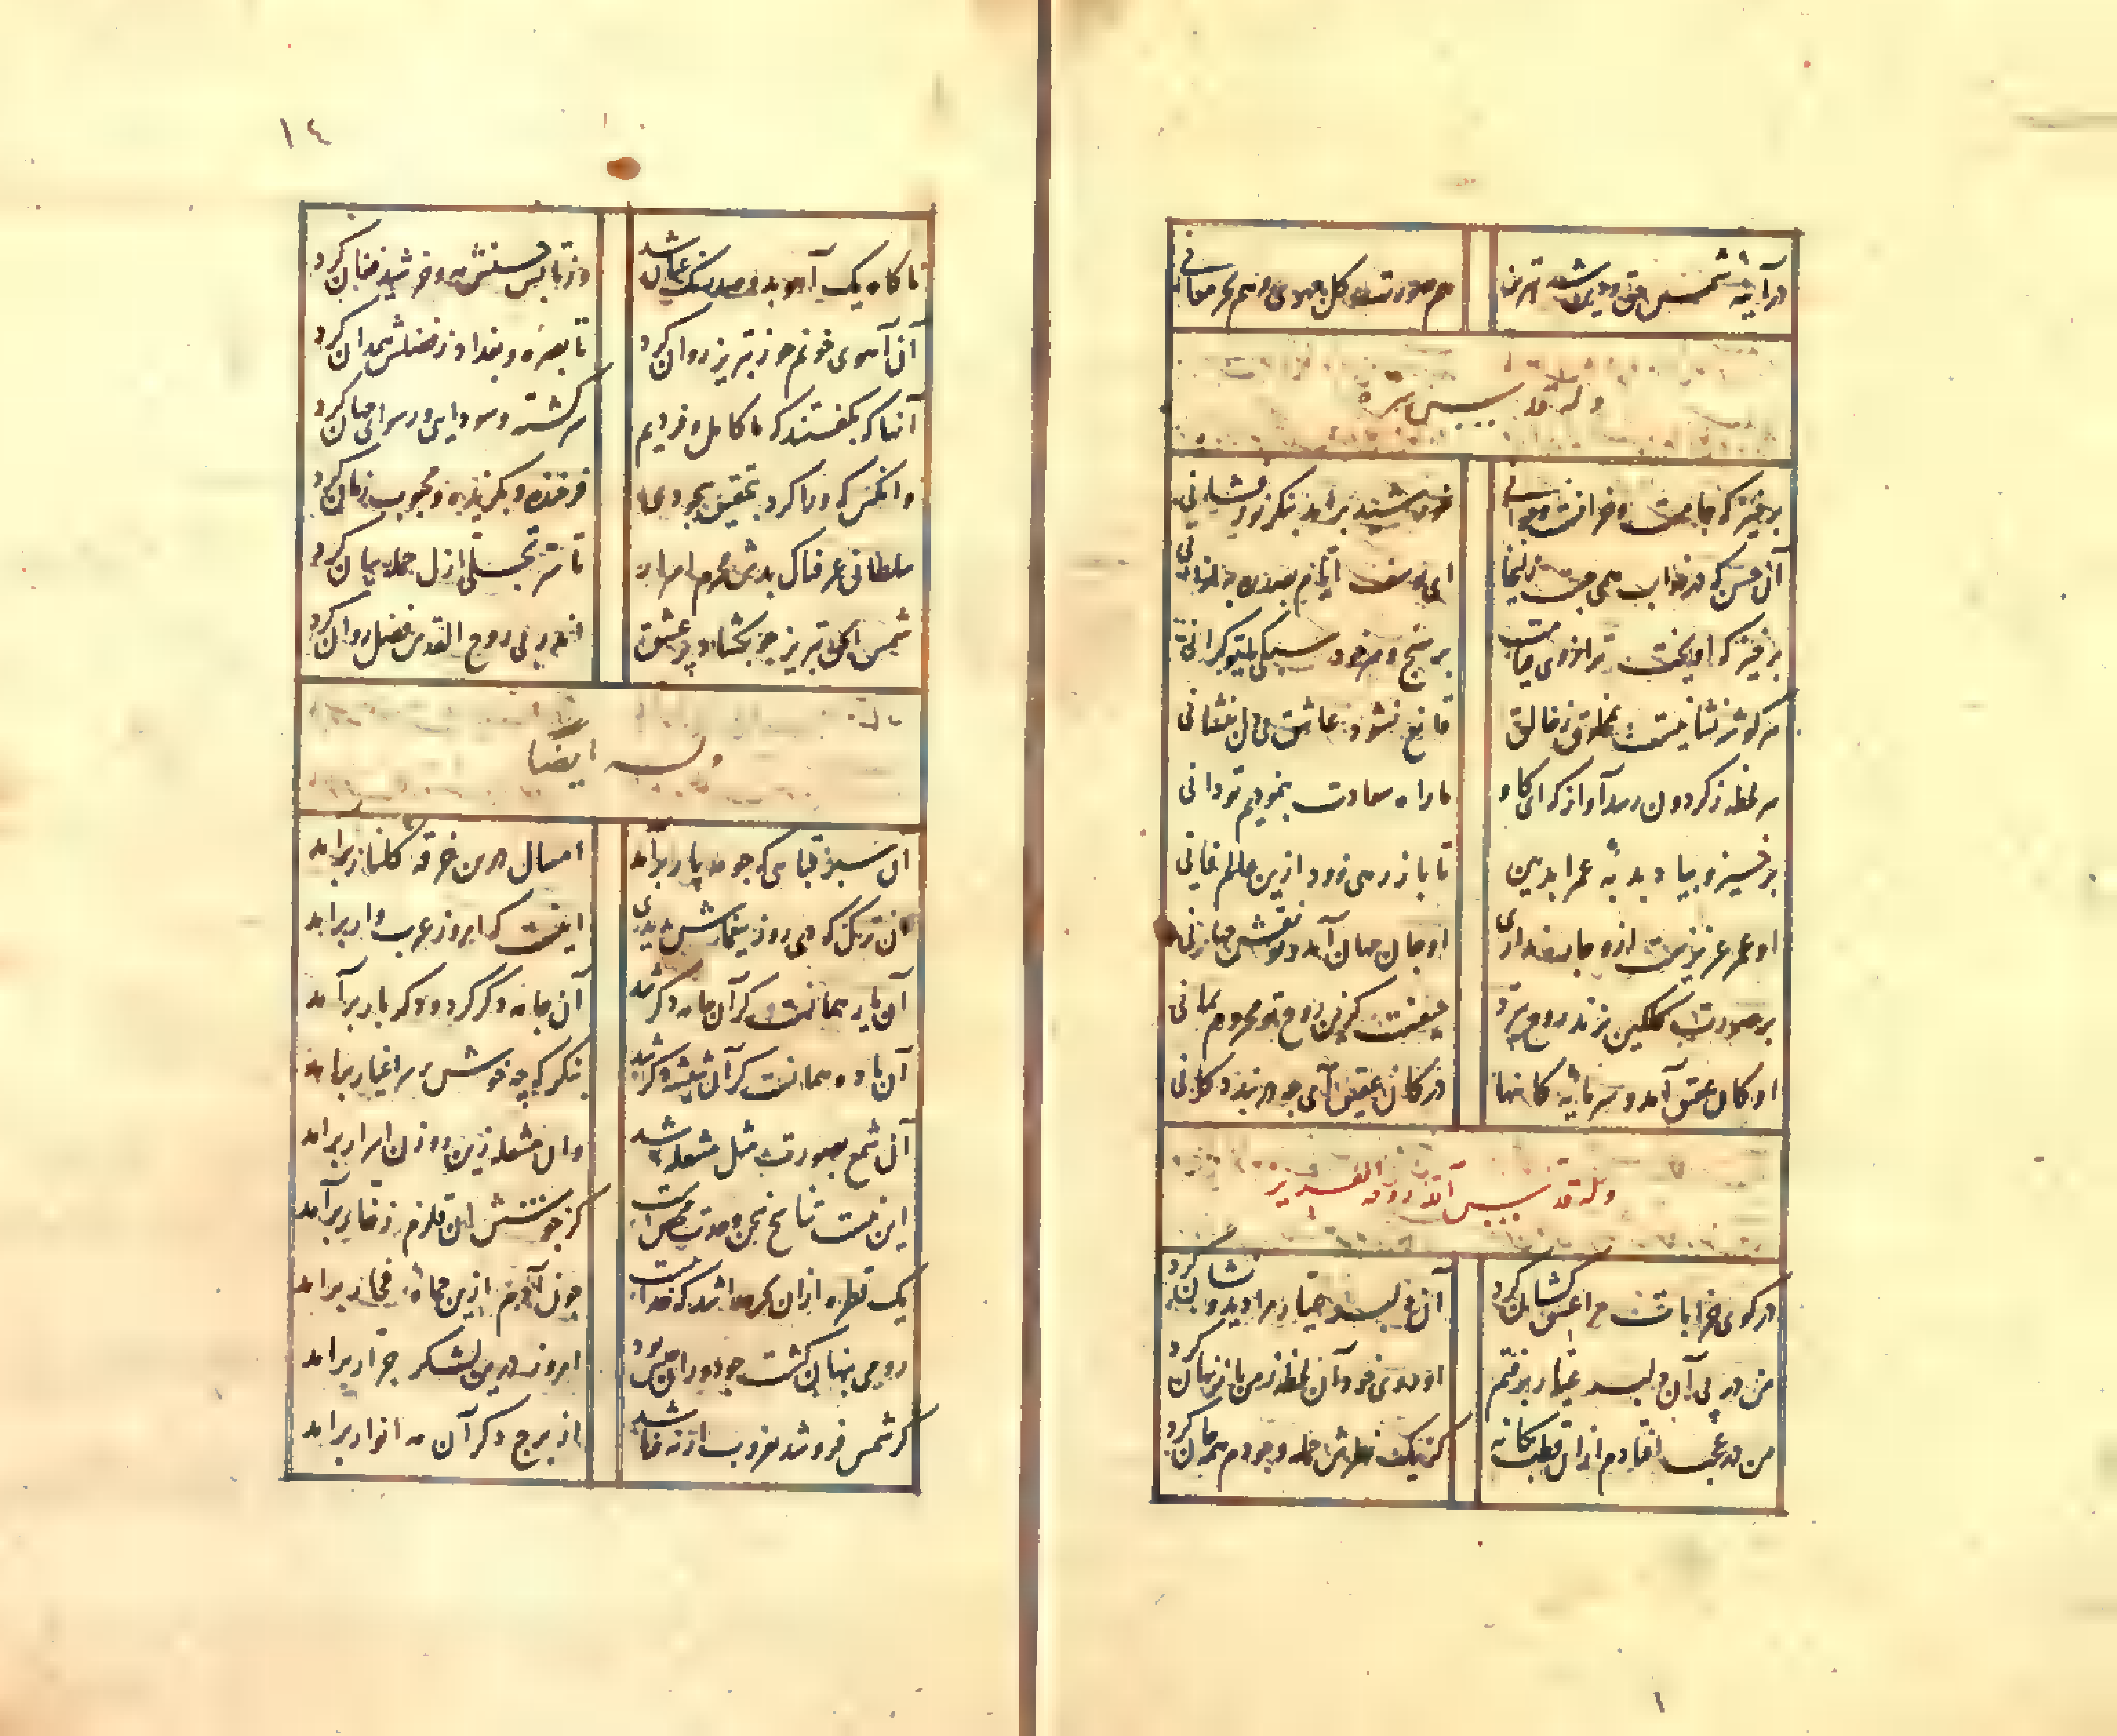 در آینهٔ شمس حق و دین شه تبریز
هم صورت کل و هم بحر معانی
وله قدس سره
برخیز که جانست و جهانست و جوانی
خورشید برآمد بنگر نورفشانی
آن حسن که در خواب همی جست زلیخا
ای یوسف ایام بصد ره به از آنی
برخیز که آویخت ترازوی قیامت
برسنج و ببین خود سبکی یا تو گرانی
هر گوش نشانیست مخلوق ز خالق
قانع نشود عاشق بی دل بنشانی
هر لحظه ز گردون رسد آواز که ای گاو
ما راه سعادت بنمودیم تو دانی
برخیز و بیا دبدبه عمر ابد بین
تا باز رهی زود ازین عالم فانی
او عمر عزیزست ازو چاره نداری
او جان جهان آمد و تو نقش جهانی
بر صورت سنگین بزند روح پذیرد
حیفست کزین روح تو محروم بمانی
او کان عقیق آمد و سرمایه کانها
در کان عقیق آی چه در بند دکانی
وله قدس الله روحه العزیز
در کوی خرابات مرا عشق کشان کرد
آن دلبر عیار مرا دید و نشان کرد
من در پی آن دلبر عیار برفتم
او روی خود آن لحظه ز من باز نهان کرد
من در عجب افتادم از آن قطب یگانه
کز یک نظرش جمله وجودم همه جان کرد
١٤
ناگاه یک آهو بدو صد رنگ عیان شد
وز تابش حسنش مه و خورشید فغان کرد
آن آهوی خوش نم چو ز تبریز روان کرد
تا بصره و بغداد ز فضلش همدان کرد
آنها که بگفتند که ما کامل و فردیم
سرگشته و سودایی و رسوای جهان کرد
وانکس که دعا کرد بتحقیق سجودی
فرخنده و بگزیده و محبوب زمان کرد
سلطان عرفناک بدش محرم اسرار
تا سر تجلی ازل جمله بیان کرد
شمس الحق تبریز چو بگشاد پر عشق
اندر پی روح القدس فضل روان کرد
وله ایضا
آن سبز قبایی که چو مه پار برآمد
امسال درین خرقه گلنار برآمد
آن ترک که دی روز بیغماش بدیدی
اینست که امروز عرب وار برآمد
آن یار همانست و گر آن جامه دگر شد
آن جامه دگر کرد و دگر بار برآمد
آن باده همانست گر آن شیشه دگر شد
بنگر که چه خوش بر سر اغیار برآمد
آن شمع بصورت مثل مشعله شد
وان مشعله زین روزن اسرار برآمد
این نیست تناسخ سخن وحدت محض است
کز جوشش آن قلزم زخار برآمد
یک قطره از آن بحر جدا شد که جدا نیست
چون آدم ازین حماه فخار برآمد
رومی پنهان گشت چو دوران حبش بود
امروز درین لشکر جرار برآمد
گر شمس فرو شد بغروب او نه فنا شد
از برج دگر آن مه انوار برآمد